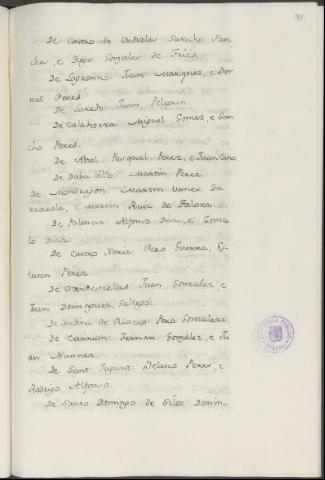 De Castro de Urdiales: Sancho San-
chez, e Diego Gonzalez de Frias.
De Logronno: Juan Marquez, e Ber-
nal Perez.
De Laredo: Juan Pelegrin.
De Calahorra: Miguel Gomez, e San-
cho Perez.
De Abtol: Pasqual Perez, e Juan Cano
De Daba lillo: Martin Perez.
De Mondragon: Martin Ybannez Da
rrazola, e Martin Ruiz de
De Palencia: Alfonso Diaz, e Gonza-
lo Diaz.
De Castro Xeriz: Pero Guerra, Es-
tevan Perez.
De Oterdesiellas: Juan Gonzalez, e
Juan Dominguez, Gallego.
De Medina de Rioseco: Pero Gonzalez.
De Carrion: Fernan Gonzalez, e Ju-
an Nunnez.
De Sant Fagunt: Velasco Perez, e
Rodrigo Alfonso.
De Santo Domingo de Silos: Domin-